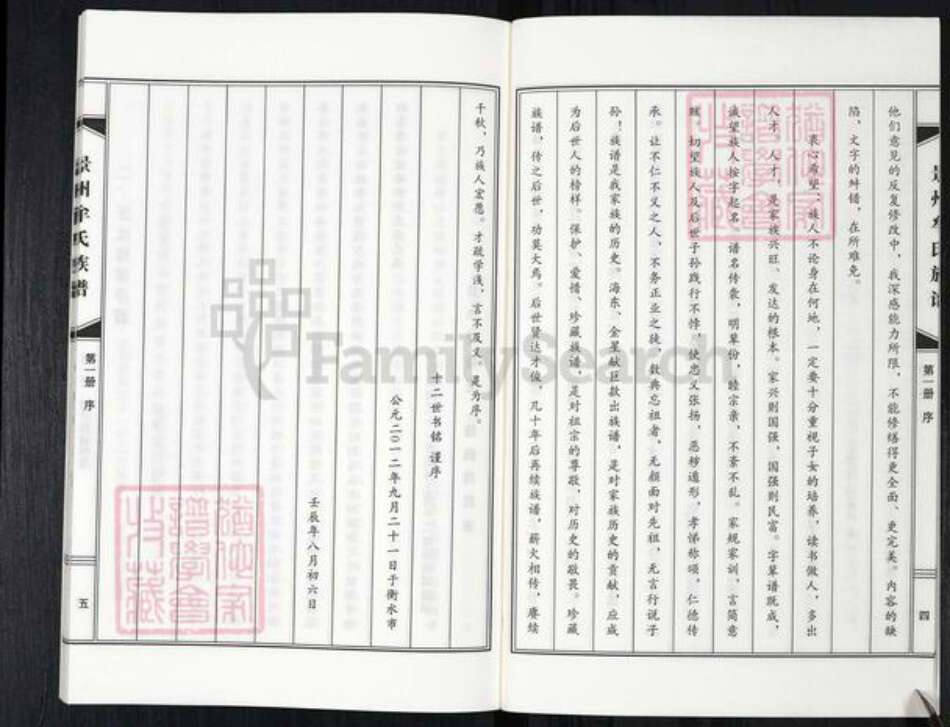 他们意见的反复修改中，我深感能力所限，不能修缮得更全面、更完美。内容的缺
陷，文字的纠错，在所难免。
衷心希望：族人不论身在何地，一定要十分重视子女的培养，读书做人，多出
人才，人才，是家族兴旺、发达的根本。家兴则国强，国强则民富。字辈谱既成，
诚望族人按字起名，谱名传袭，明辈份，睦宗亲，不紊不乱。家规家训，言简意
赅，切望族人及后世子孙践行不悖，使忠义张扬，恶秽遁形，孝悌称颂，仁德传
承。让不仁不义之人、不务正业之徒、数典忘祖者，无颜面对先祖，无言行说子
孙！族谱是我家族的历史。海东、金星献巨款出族谱，是对家族历史的贡献，应成
为后世人的榜样。保护、爱惜、珍藏族谱，是对祖宗的尊敬，对历史的敬畏。珍藏
族谱，传之后世，功莫大焉。后世贤达才俊，几十年后再续族谱，薪火相传，赓续
第一册 序
四
千秋，乃族人宏愿。才疏学浅，言不及义。是为序。
十二世书铭 谨序
公元二〇一二年九月二十一日于衡水市
壬辰年八月初六日
州 氏族谱
第一册 序
五
FamilySearch